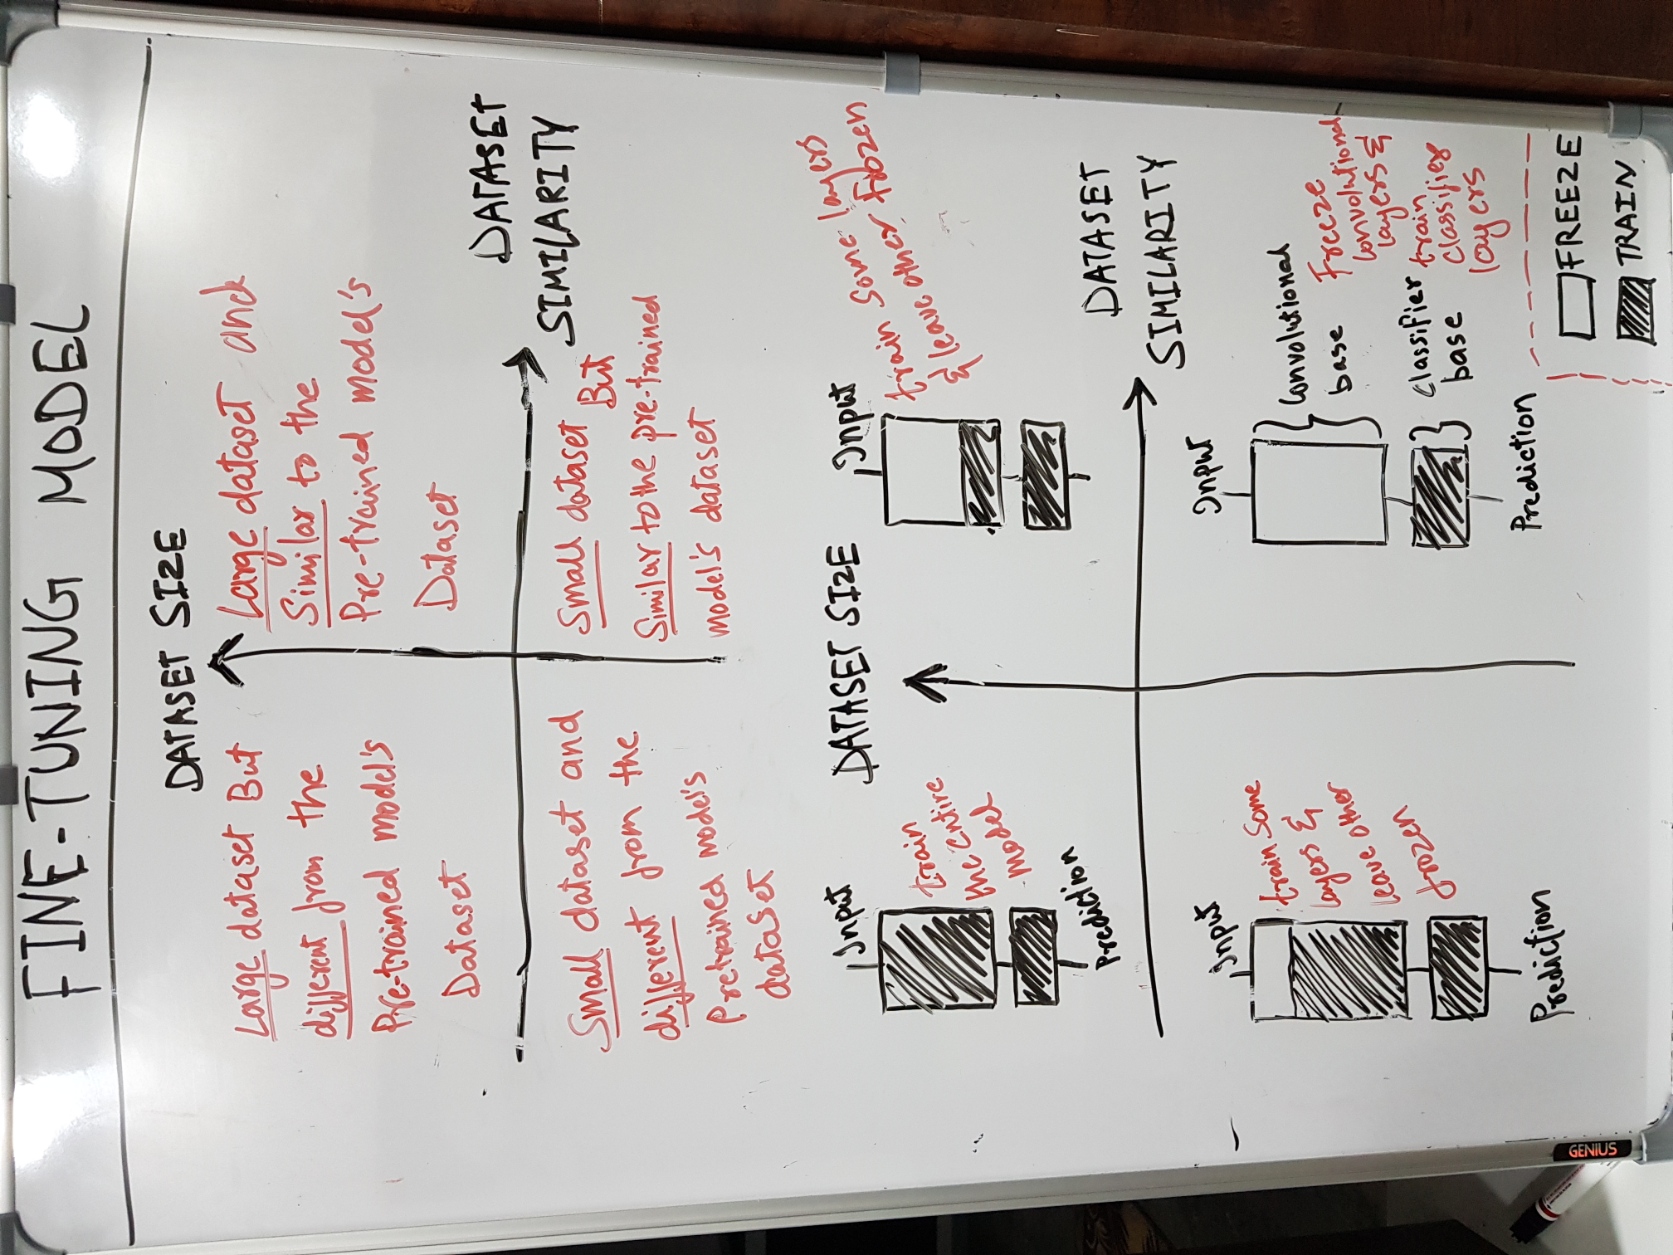 FINE-TUNING MODEL
DATASET SIZE
Large dataset But
different from the
Pre-trained model's
Dataset
Large dataset and
Similar to the
Pre-trained model's
Dataset
DATASET
SIMILARITY
Small dataset and
different from the
Pretrained model's
dataset
Small dataset But
Similar to the pre-trained
model's dataset
DATASET SIZE
Input
train
the entire
model
Prediction
Input
train some layers
& leave other frozen
DATASET
SIMILARITY
Input
train some
layers &
leave other
frozen
Prediction
Input
Convolutional
base
Freeze
convolutional
layers &
train
classifier
layers
classifier
base
Prediction
FREEZE
TRAIN
GENIUS